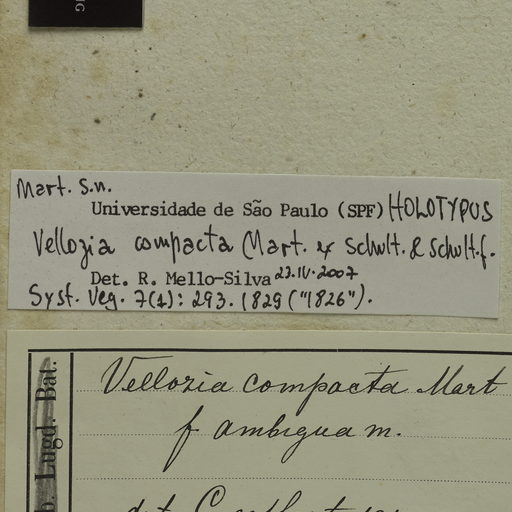 Mart. s.n.
Universidade de São Paulo (SPF) HOLOTYPUS
Vellozia compacta Mart. ex Schult. & Schult.f.
Det. R. Mello-Silva 22.IV.2007
Syst. Veg. 7(1): 293. 1829 ("1826").
Vellozia compacta Mart
f ambigua m.
b. Lugd. Bat.